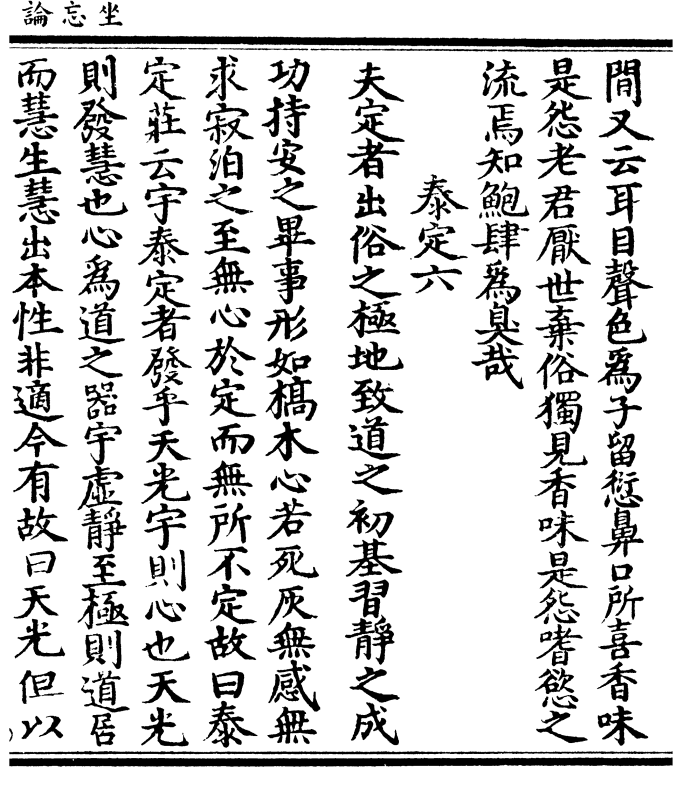 坐忘論
閒又云耳目聲色爲子留愆鼻口所喜香味
是怨老君厭世棄俗獨見香味是怨嗜慾之
流焉知鮑肆爲臭哉
泰定六
夫定者出俗之極地致道之初基習靜之成
功持安之畢事形如槁木心若死灰無感無
求寂泊之至無心於定而無所不定故曰泰
定莊云宇泰定者發乎天光宇則心也天光
則發慧也心爲道之器宇虛靜至極則道居
而慧生慧出本性非適今有故曰天光但以